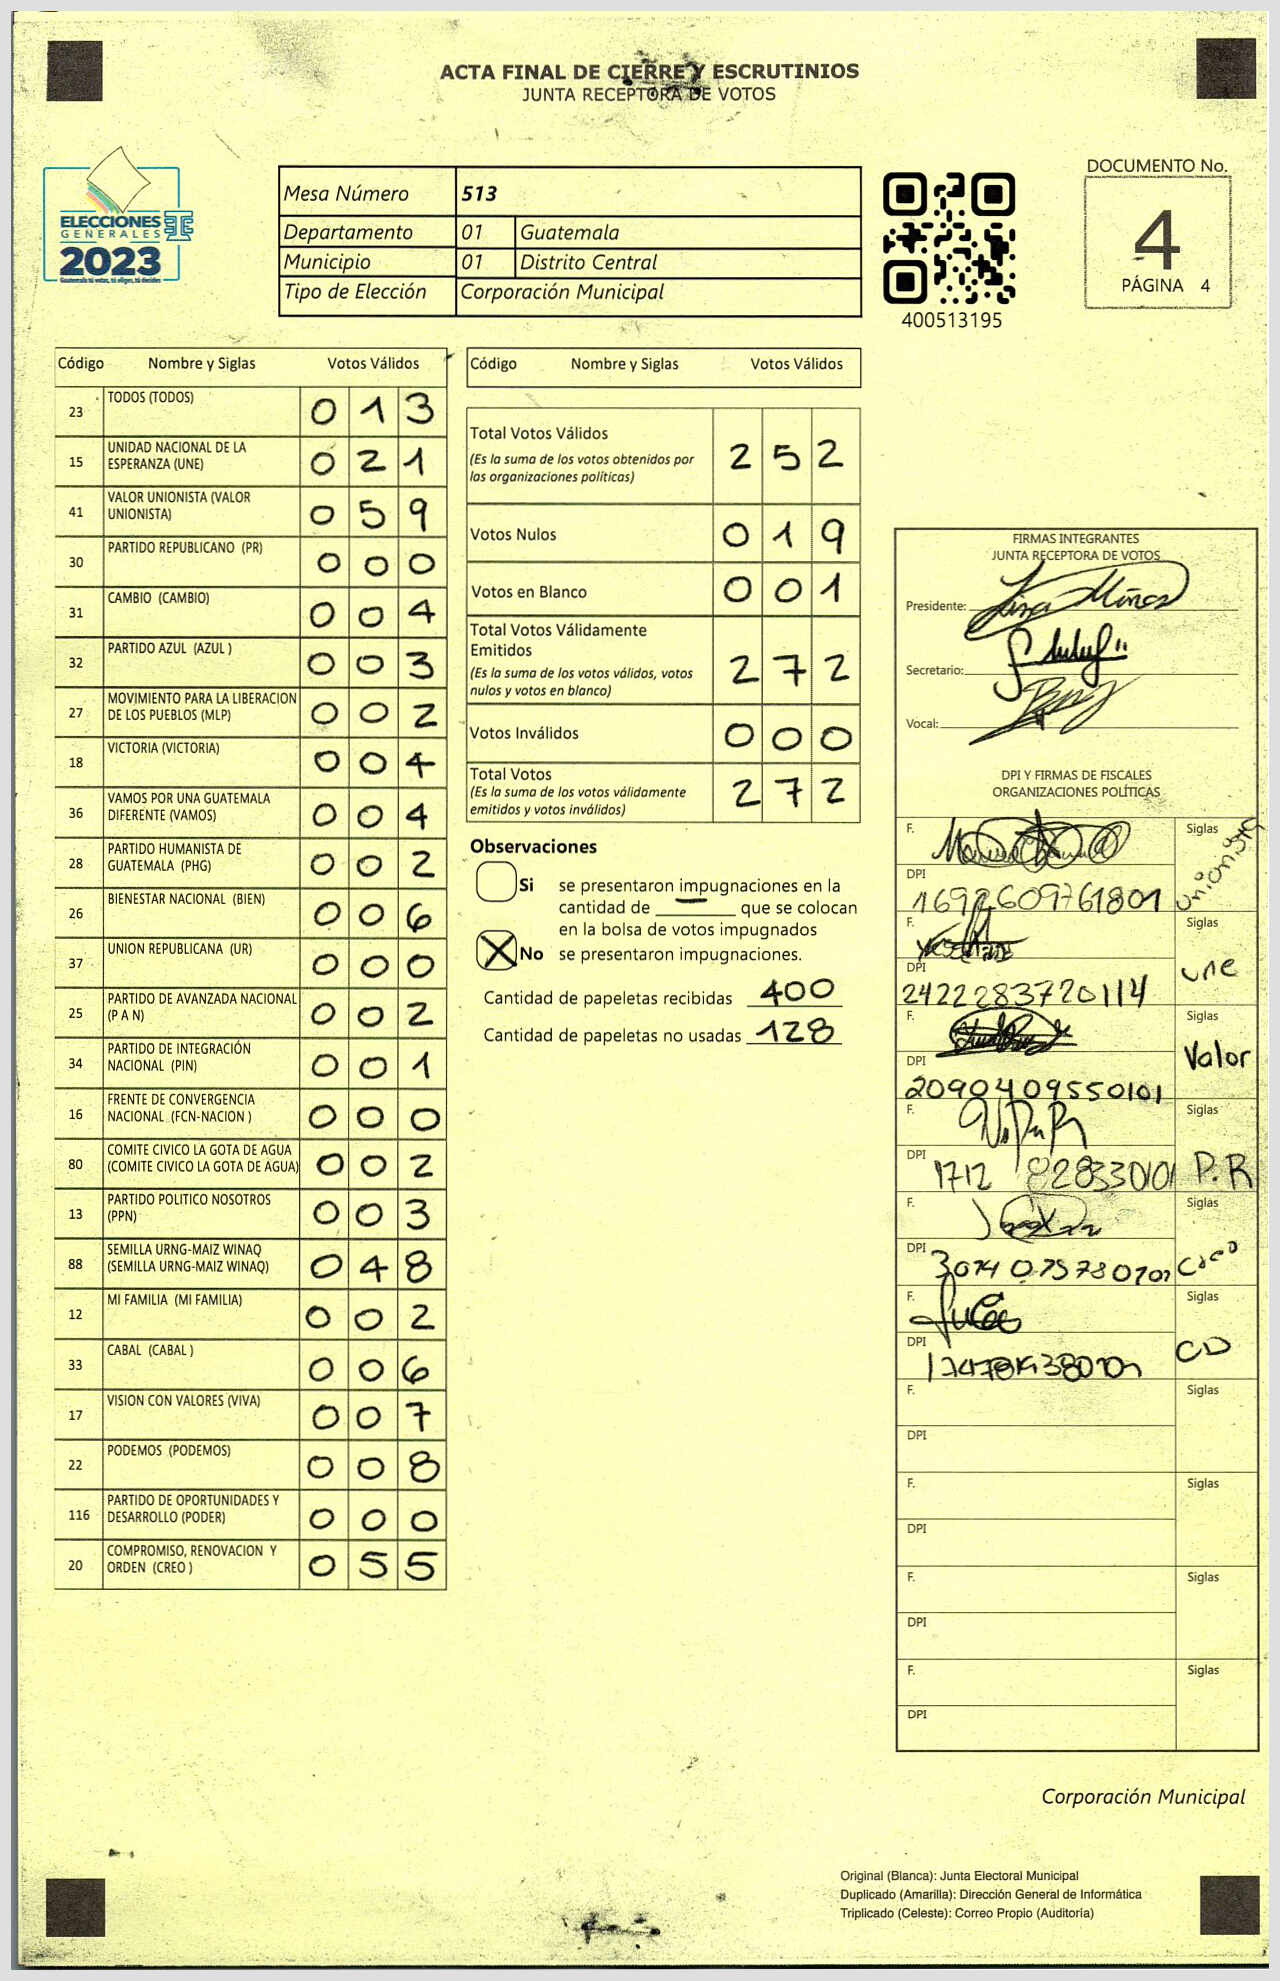 ACTA FINAL DE CIERRE Y ESCRUTINIOS
JUNTA RECEPTORA DE VOTOS
ELECCIONES
GENERALES
2023
Guatemala tú votas, tú eliges, tú decides
Mesa Número 513
Departamento 01 Guatemala
Municipio 01 Distrito Central
Tipo de Elección Corporación Municipal
400513195
DOCUMENTO No.
4
PÁGINA 4
Código Nombre y Siglas Votos Válidos
23 TODOS (TODOS) 0 1 3
15 UNIDAD NACIONAL DE LA
ESPERANZA (UNE) 0 2 1
41 VALOR UNIONISTA (VALOR
UNIONISTA) 0 5 9
30 PARTIDO REPUBLICANO (PR) 0 0 0
31 CAMBIO (CAMBIO) 0 0 4
32 PARTIDO AZUL (AZUL ) 0 0 3
27 MOVIMIENTO PARA LA LIBERACION
DE LOS PUEBLOS (MLP) 0 0 2
18 VICTORIA (VICTORIA) 0 0 4
36 VAMOS POR UNA GUATEMALA
DIFERENTE (VAMOS) 0 0 4
28 PARTIDO HUMANISTA DE
GUATEMALA (PHG) 0 0 2
26 BIENESTAR NACIONAL (BIEN) 0 0 6
37 UNION REPUBLICANA (UR) 0 0 0
25 PARTIDO DE AVANZADA NACIONAL
(P A N) 0 0 2
34 PARTIDO DE INTEGRACIÓN
NACIONAL (PIN) 0 0 1
16 FRENTE DE CONVERGENCIA
NACIONAL (FCN-NACION ) 0 0 0
80 COMITE CIVICO LA GOTA DE AGUA
(COMITE CIVICO LA GOTA DE AGUA) 0 0 2
13 PARTIDO POLITICO NOSOTROS
(PPN) 0 0 3
88 SEMILLA URNG-MAIZ WINAQ
(SEMILLA URNG-MAIZ WINAQ) 0 4 8
12 MI FAMILIA (MI FAMILIA) 0 0 2
33 CABAL (CABAL ) 0 0 6
17 VISION CON VALORES (VIVA) 0 0 7
22 PODEMOS (PODEMOS) 0 0 8
116 PARTIDO DE OPORTUNIDADES Y
DESARROLLO (PODER) 0 0 0
20 COMPROMISO, RENOVACION Y
ORDEN (CREO ) 0 5 5
Código Nombre y Siglas Votos Válidos
Total Votos Válidos 2 5 2
(Es la suma de los votos obtenidos por
las organizaciones políticas)
Votos Nulos 0 1 9
Votos en Blanco 0 0 1
Total Votos Válidamente
Emitidos 2 7 2
(Es la suma de los votos válidos, votos
nulos y votos en blanco)
Votos Inválidos 0 0 0
Total Votos 2 7 2
(Es la suma de los votos válidamente
emitidos y votos inválidos)
Observaciones
Si se presentaron impugnaciones en la
cantidad de — que se colocan
en la bolsa de votos impugnados
X No se presentaron impugnaciones.
Cantidad de papeletas recibidas 400
Cantidad de papeletas no usadas 128
FIRMAS INTEGRANTES
JUNTA RECEPTORA DE VOTOS
Presidente:
Secretario:
Vocal:
DPI Y FIRMAS DE FISCALES
ORGANIZACIONES POLÍTICAS
F. Siglas unionista
DPI 1692609761801
F. Siglas une
DPI 2422283720114
F. Siglas Valor
DPI 2090409550101
F. Siglas P.R
DPI 1712 828330101
F. Siglas Creo
DPI
F. Siglas CD
DPI
F. Siglas
DPI
F. Siglas
DPI
F. Siglas
DPI
F. Siglas
DPI
Corporación Municipal
Original (Blanca): Junta Electoral Municipal
Duplicado (Amarilla): Dirección General de Informática
Triplicado (Celeste): Correo Propio (Auditoría)